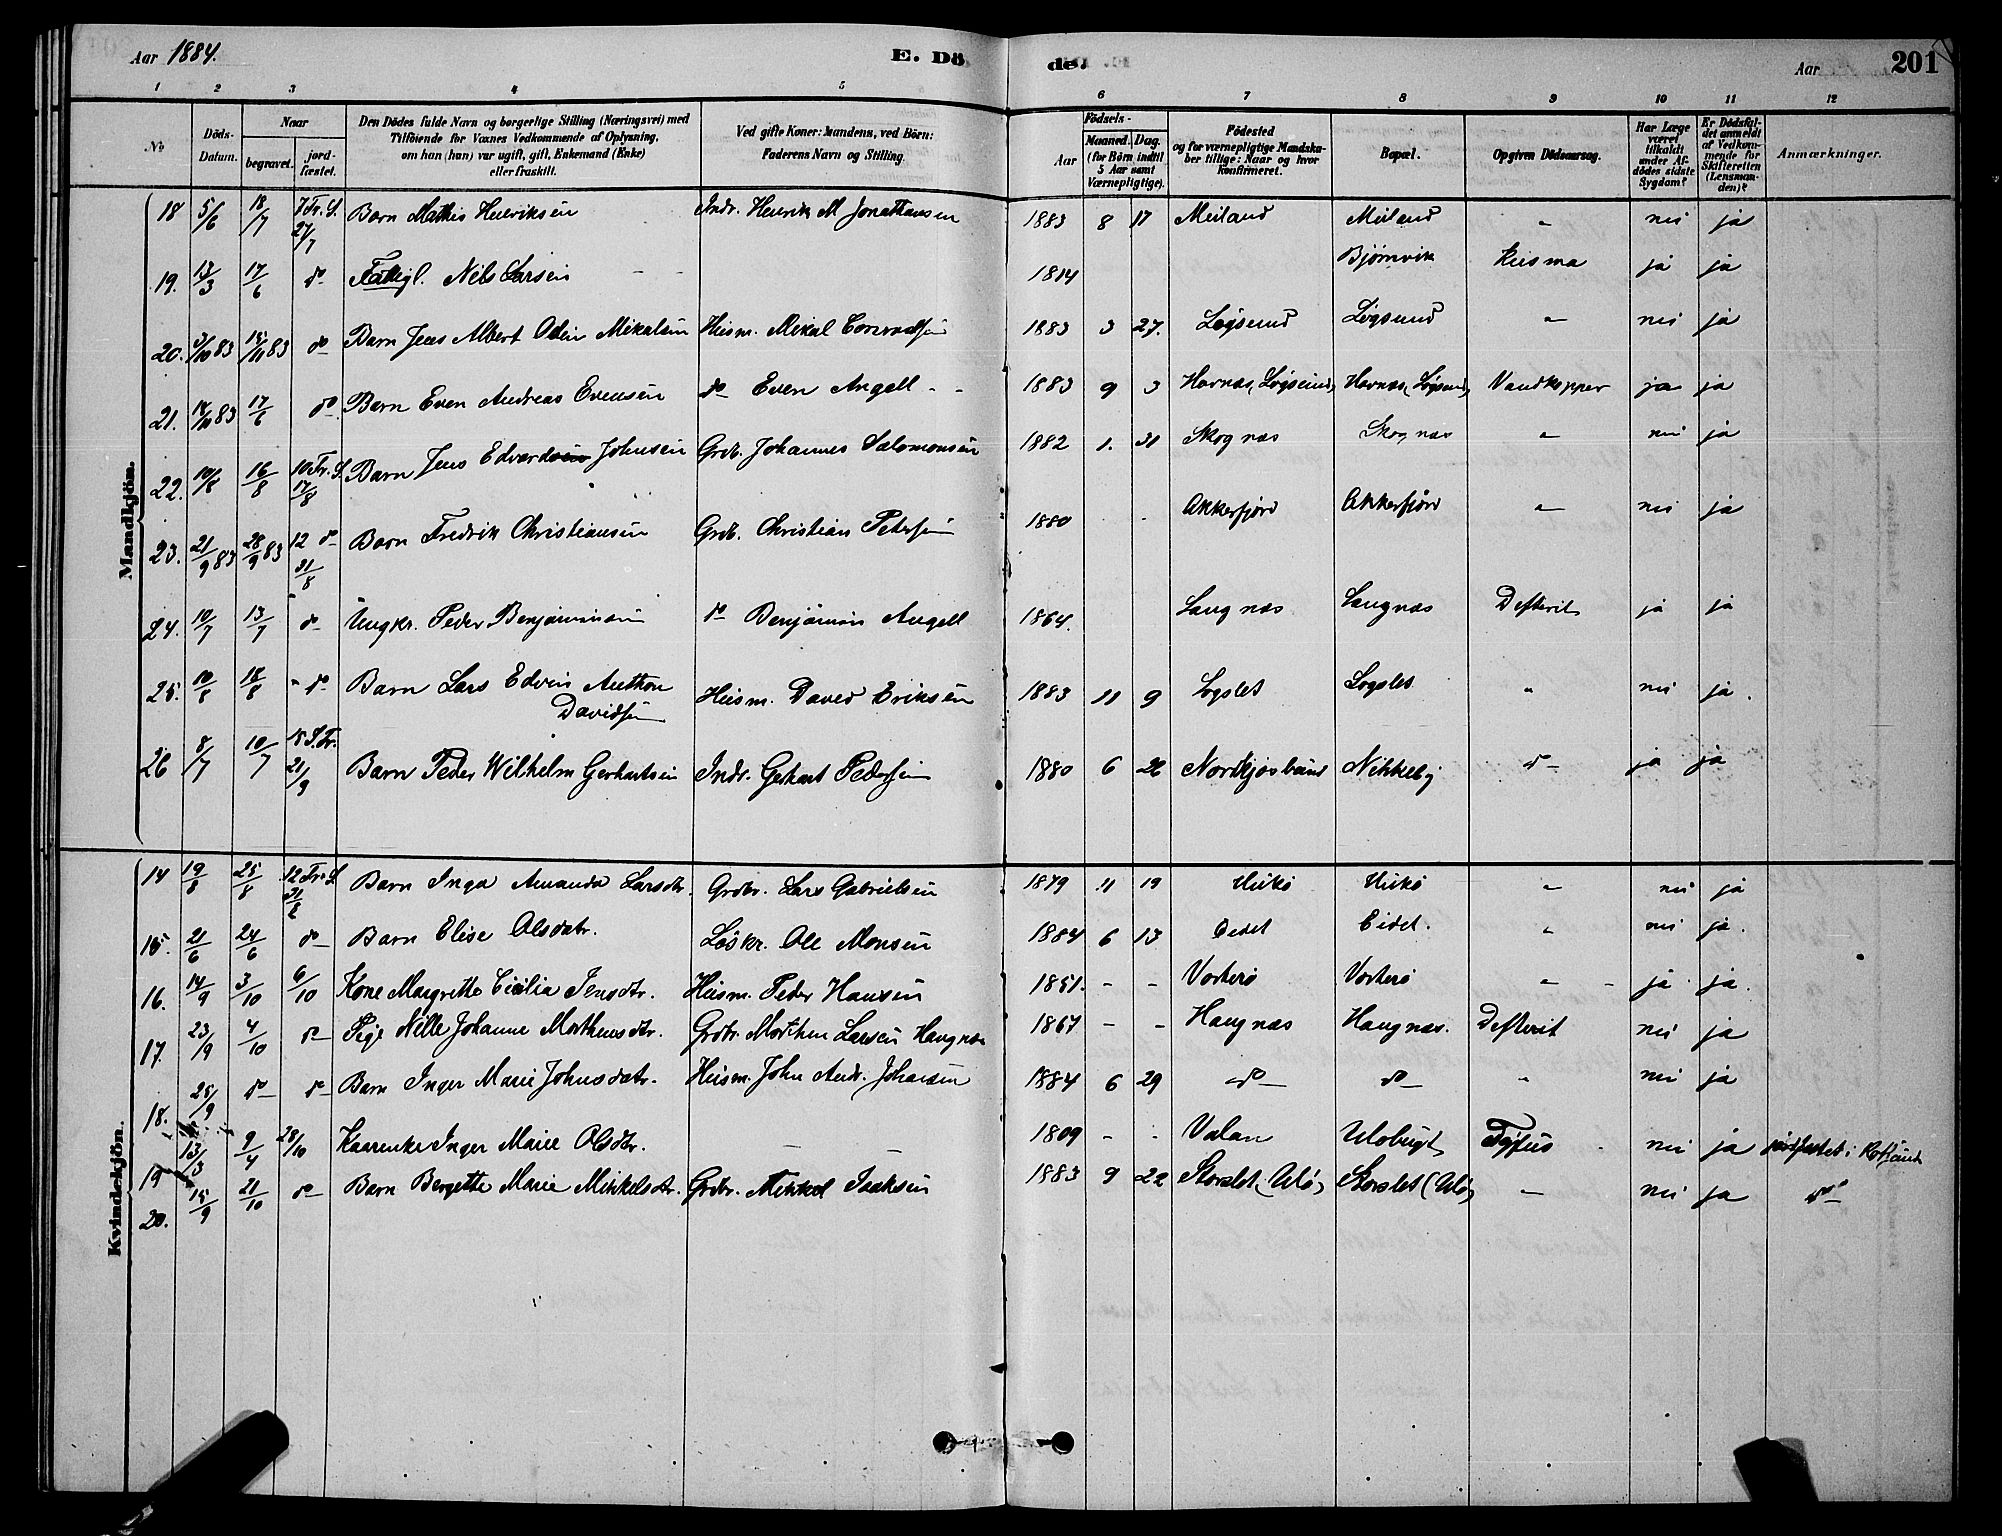 Aar 1884. E. Dö
de. Aar 201
1 2 3 4 5 6 7 8 9 10 11 12
No
Döds-
Datum.
Naar
begravet.
jord-
fæstet.
Den Dödes fulde Navn og borgerlige Stilling (Næringsvei) med
Tilföiende for Voxnes Vedkommende af Oplysning,
om han (hun) var ugift, gift, Enkemand (Enke)
eller fraskilt.
Ved gifte Koner: Mandens, ved Börn:
Faderens Navn og Stilling.
Födsels-
Aar
Maaned. Dag.
(for Börn indtil
5 Aar samt
Værnepligtige).
Födested
og for værnepligtige Mandska-
ber tillige: Naar og hvor
konfirmeret.
Bopæl.
Opgiven Dödsaarsag.
Har Læge
været
tilkaldt
under Af-
dödes sidste
Sygdom?
Er Dödsfal-
det anmeldt
af Vedkom-
mende for
Skifteretten
(Lensman-
den)?
Anmærkninger.
Mandkjön.
18 5/6 18/7 7 Tr. S. 27/7 Barn Mathis Henriksen Indr. Henrik M Jonathansen 1883 8 17 Meiland Meiland " nei ja
19. 13/3 17/6 do Fattigl. Nils Larsen 1814 Bjørnvik ja ja
20. 3/10 83 15/11 83 do Barn Jens Albert Odin Mikalsen Husm. Mikal Conradsen 1883 3 27. Løgsund Løgsund " nei ja
21. 14/10 83 17/6 do Barn Even Andreas Evensen do Even Angell 1883 9 3 Havnæs (Løgsund) Havnæs (Løgsund) Vandkopper ja ja
22. 10/8 16/8 10 Tr. S. 17/8 Barn Jens Edvard Johnsen Grdb. Johannes Salomonsen 1882 1. 31 Skognæs Skognæs " nei ja
23. 21/9 83 28/9 83 12 do 31/8 Barn Fredrik Christiansen Grdb. Christian Petersen 1880 Akkerfjord Akkerfjord " nei ja
24. 10/7 13/7 " do Ungkr. Peder Benjaminsen do Benjamin Angell 1864. Langnæs Langnæs Difterit ja ja
25. 10/8 18/8 " do Barn Lars Edvin Anthon
Davidsen Husm. David Eriksen 1883 11 9 Løgslet Løgslet " nei ja.
26 8/7 10/7 15 S. Tr. 21/9 Barn Peder Wilhelm Gerhartsen Indr. Gerhart Pedersen 1880 6 26 Nordkjosbund Nikkeby do ja ja
Kvindekjön.
14 19/8 25/8 12 Tr. S 31/8 Barn Inga Amanda Larsdtr. Grdbr. Lars Gabrielsen 1879 11 19 Hukø Hukø " nei ja
15. 21/6 24/6 do Barn Elise Olsdatr. Løskr. Ole Monsen 1884 6 13 Eidet Eidet. " nei ja.
16. 14/9 3/10 6/10 Kone Margrethe Cicilia Jensdtr. Husm. Peder Hansen 1851. - - Vorterø Vorterø " ja ja.
17. 23/9 4/10 do Pige Nille Johanne Morthensdtr. Grdbr. Morthen Larsen Haugnæs 1867 - - Haugnæs Haugnæs. Difterit nei ja
18. 25/9 do do Barn Inger Marie Johnsdatr. Husm. John Andr. Johansen 1884 6 29 do do " nei ja
19 13/3 9/4 28/10 Inger Marie Olsdtr. - 1809 - - Valan Uløbugt Tyfus nei ja jordfæstet i Rotsund
20. 15/9 21/10 do Barn Bergette Marie Mikkelsdtr. Grdbr. Mikkel Isaksen 1883 9 22 Storslet (Ulø) Storslet (Ulø) - nei ja do